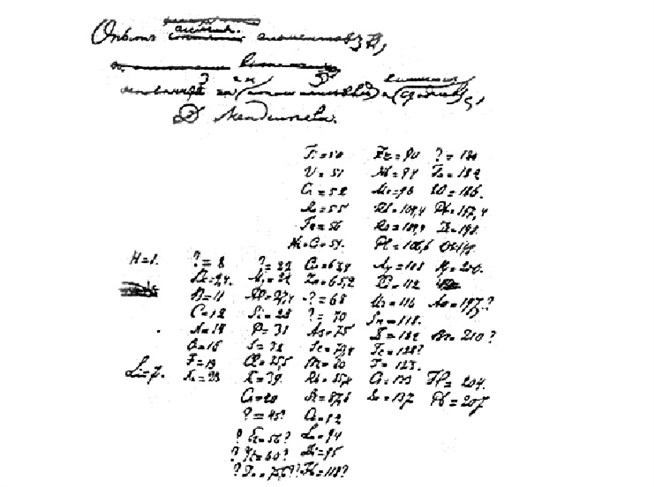 Опытъ системы элементовъ
Д Менделѣевъ.
Ti=50 Zr=90 ?=180
V=51 Nb=94 Ta=182
Cr=52 Mo=96 W=186.
Mn=55 Rh=104,4 Pt=197,4
Fe=56 Ru=104,4 Ir=198.
Ni=Co=59. Pl=106,6 Os=199
H=1. ?=8 ?=22 Cu=63,4 Ag=108 Hg=200.
Be=9,4 Mg=24 Zn=65,2 Cd=112
B=11 Al=27,4 ?=68 Ur=116 Au=197?
C=12 Si=28 ?=70 Sn=118.
N=14 P=31 As=75 Sb=122 Bi=210?
O=16 S=32 Se=79,4 Te=128?
F=19 Cl=35,5 Br=80 I=127.
Li=7. Na=23 K=39. Rb=85,4 Cs=133 Tl=204.
Ca=40 Sr=87,6 Ba=137 Pb=207
?=45? Ce=92
?Er=56? La=94
?Yt=60? Di=95
?In=75,6?? Th=118?